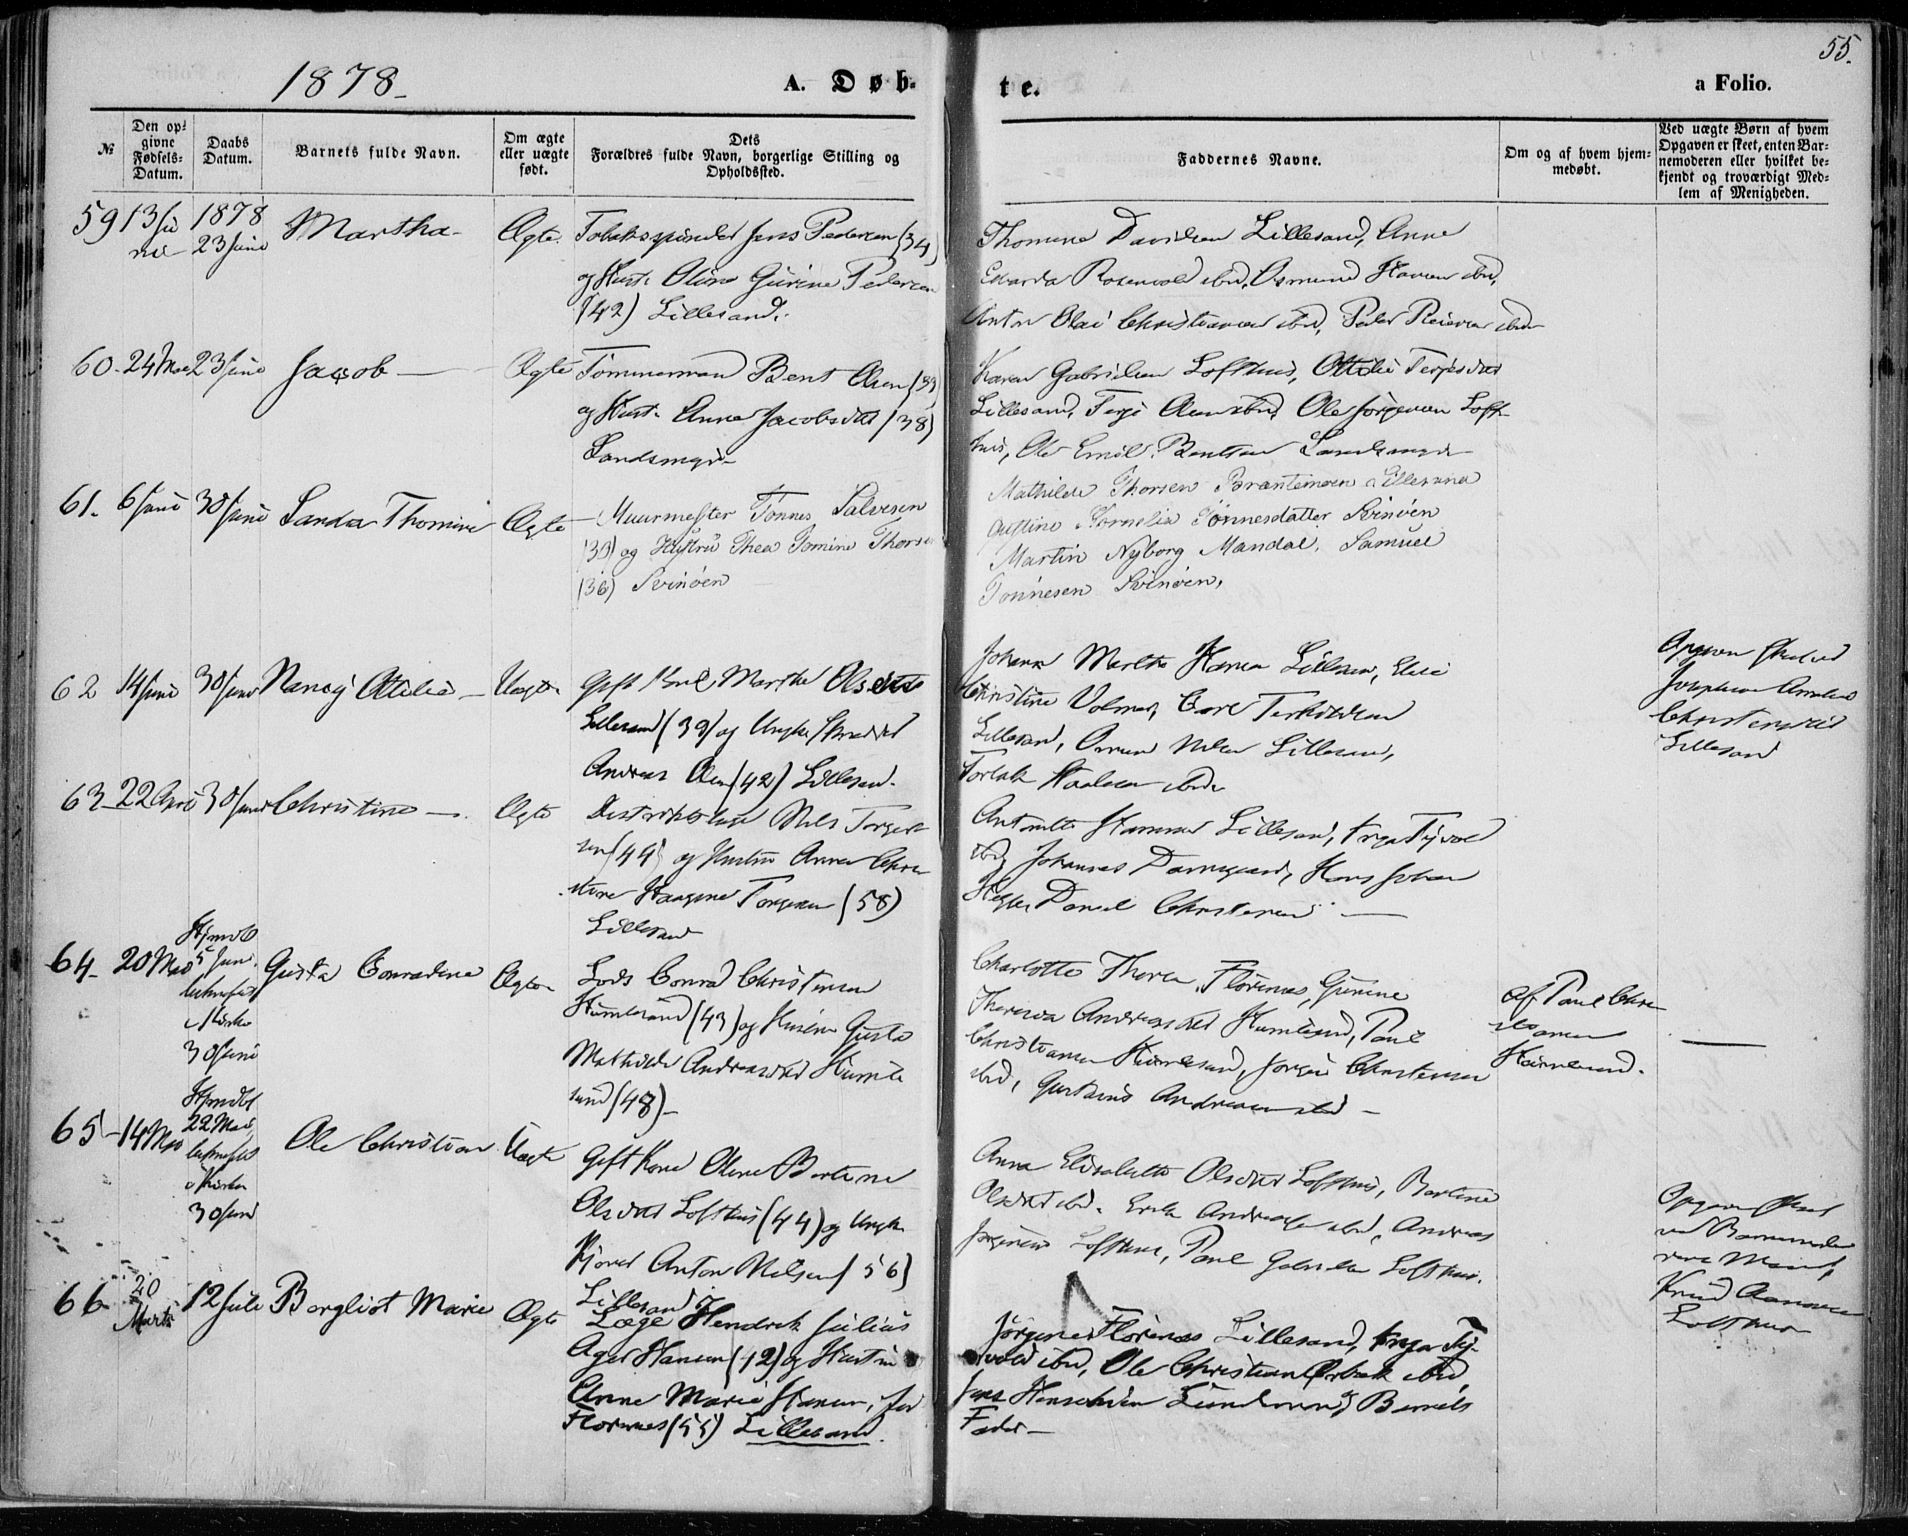 1878
A. Døb-
te.
a Folio.
55.
№
Den op-
givne
Fødsels-
Datum.
Daabs
Datum.
Barnets fulde Navn.
Om ægte
eller uægte
født.
Dets
Forældres fulde Navn, borgerlige Stilling og
Opholdssted.
Faddernes Navne.
Om og af hvem hjem-
medøbt.
Ved uægte Børn af hvem
Opgaven er skeet, enten Bar-
nemoderen eller hvilket be-
kjendt og troværdigt Med-
lem af Menigheden.
59
13 Ju
nii
1878
23 Juni
Martha
Ægte
Tobakspinder Jens Pedersen (34)
og Hust. Oline Gurine Pedersen
(42) Lillesand.
Thomine Davidsen Lillesand, Anne
Edvarda Rosenvold ibid, Osmund Hansen ibid,
Anton Olai Christiansen ibid, Peder Reiersen ibid
60
24 Mai
23 Juni
Jacob
Ægte
Tømmermand Bent Olsen (39)
og Hust. Anne Jacobsdat (38)
Sandsmyr
Karen Gabrielsen Lofthus, Ottilie Terjesdat
Lillesand, Terje Olsen ibid, Ole Jørgensen Loft-
hus, Ole Emil Bentsen Sandsmyr
61.
6 Juni
30 Juni
Sanda Thomine
Ægte
Muurmester Tønnes Salvesen
(39) og Hustru Thea Tomine Thorsen
(36) Svinøen
Mathilde Thorsen Bræntemoen Lillesand
Justine Kornelia Tønnesdatter Svinøen
Martin Nyborg Mandal, Samuel
Tønnesen Svinøen,
62
14 Juni
30 Juni
Nancy Otilie
Uægte
Gift Marthe Olsdat
Lillesand (39) og Ungk Skrædder
Andreas Olsen (42) Lillesand.
Johanne Marthe Hansen Lillesand, Elise
Christine Volmer, Carl Terkildsen
Lillesand, Nilsen Lillesand,
Torlak ibid
Opgaven skeet ved
Josephine
Christensdat
Lillesand
63
22 April
30 Juni
Christine
Ægte
Distriktslæge Nils Torger-
sen (49) og Hustru Anne Chri
stine Haagine Torgersen (58)
Lillesand
Antonette Hammer Lillesand, Inga Tjvold
ibid, Johannes Dannegaard, Hans Johan
Daniel Christensen
64
20 Mai
Hjmdbt
5 Juni
bekræftet
i Kirke
30 Juni
Gusta Conradine
Ægte
Lods Conrad Christensen
Humlesund (43) og Hustru Gusta
Mathilde Andreasdat Humle
sund (48)
Charlotte Thorsen, Florenæs, Gurine
Theresia Andreasdat Humlesund, Paul
Christiansen Humlesund, Jørgen Christensen
ibid, Gustavus Andreasen ibid
Af Paul Chri
stiansen
Humlesund.
65
14 Mai
Hjmdbt
22 Mai
bekræftet
i Kirken
30 Juni
Ole Christian
Uægte
Gift Kone Oline Bertine
Olsdat Lofthus (44) og Ungk.
Anton Nilsen (56)
Lillesand
Anna Elisabeth Olsdat Lofthus, Bertine
Olsdat ibid. Erik Andreasen ibid, Andreas
Jørgensen Lofthus, Paul Gabrielsen Lofthus.
Opgaven skeet
ved Barnemode
rens Mand,
Knud Aanonsen
Lofthus
66
20
Marts
12 Juli
Bergliot Marie
Ægte
Læge Hendrik Julius
Ager Hansen (42) og Hustru
Anne Marie Hansen, fød
Florenæs (55) Lillesand.
Jørgine Florenæs Lillesand, Inga Tj-
vold ibid, Ole Christian Ørbæk ibid
Jens Henschien Lundemand Barnets
Fader